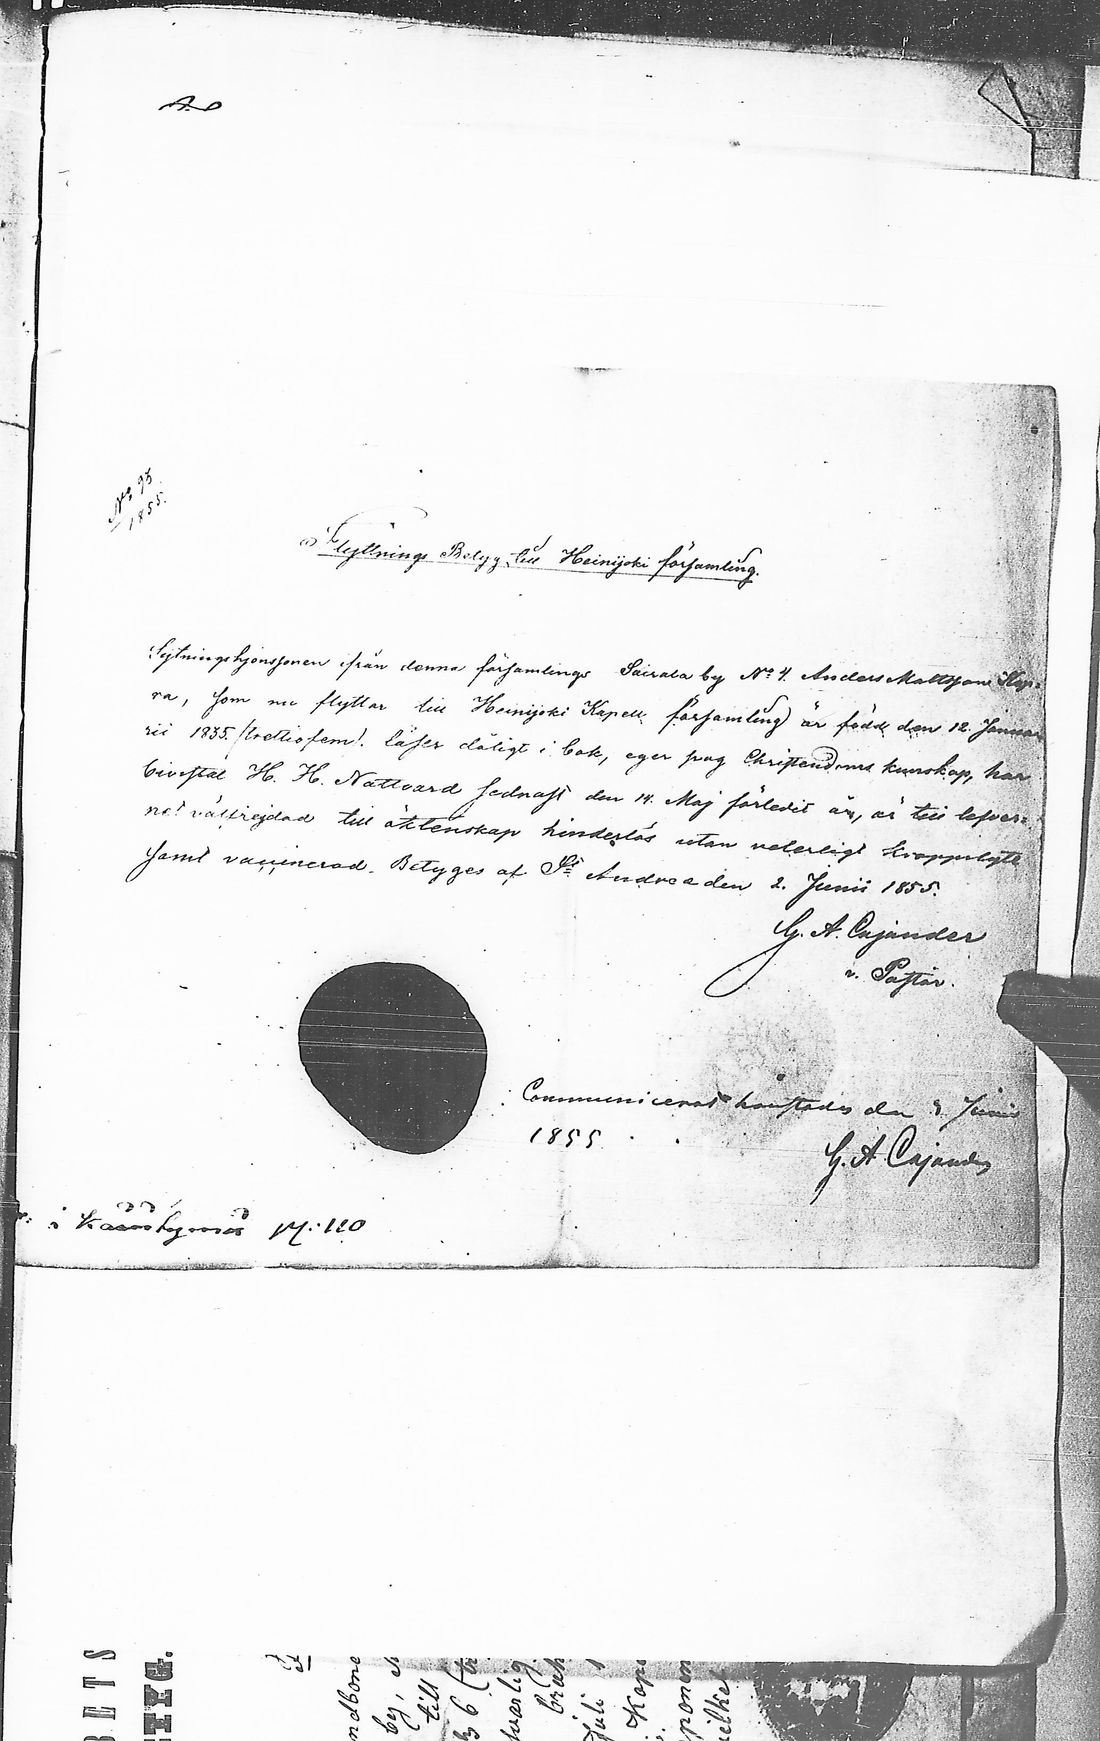 No 95
1855.
Flyttnings Betyg till Heinijoki församling.
Sytningshjonssonen ifrån denna församlings Sairala by No 4. Anders Mattsson
ra, som nu flyttar till Heinijoki Kapell församling är född den 12. Janua-
rii 1835 /trettiofem/. Läser dåligt i bok, eger svag Christendoms kunskap, har
bivistat H. H. Nattvard sednast den 14. Maj förledit år, är till lefver-
net välfrejdad till äktenskap hinderlös utan veterligt kroppslyte
samt vaccinerad. Betyges af St Andreæ den 2. Junii 1855.
G. A. Cajander
v. Pastor.
Communicerat den 3 Junii
1855
G. A Cajander
i p: 110
BETS
TYG.
ndbone
by,
till
6
svårlig
bräk
Juli
Kape
ponen
vilket